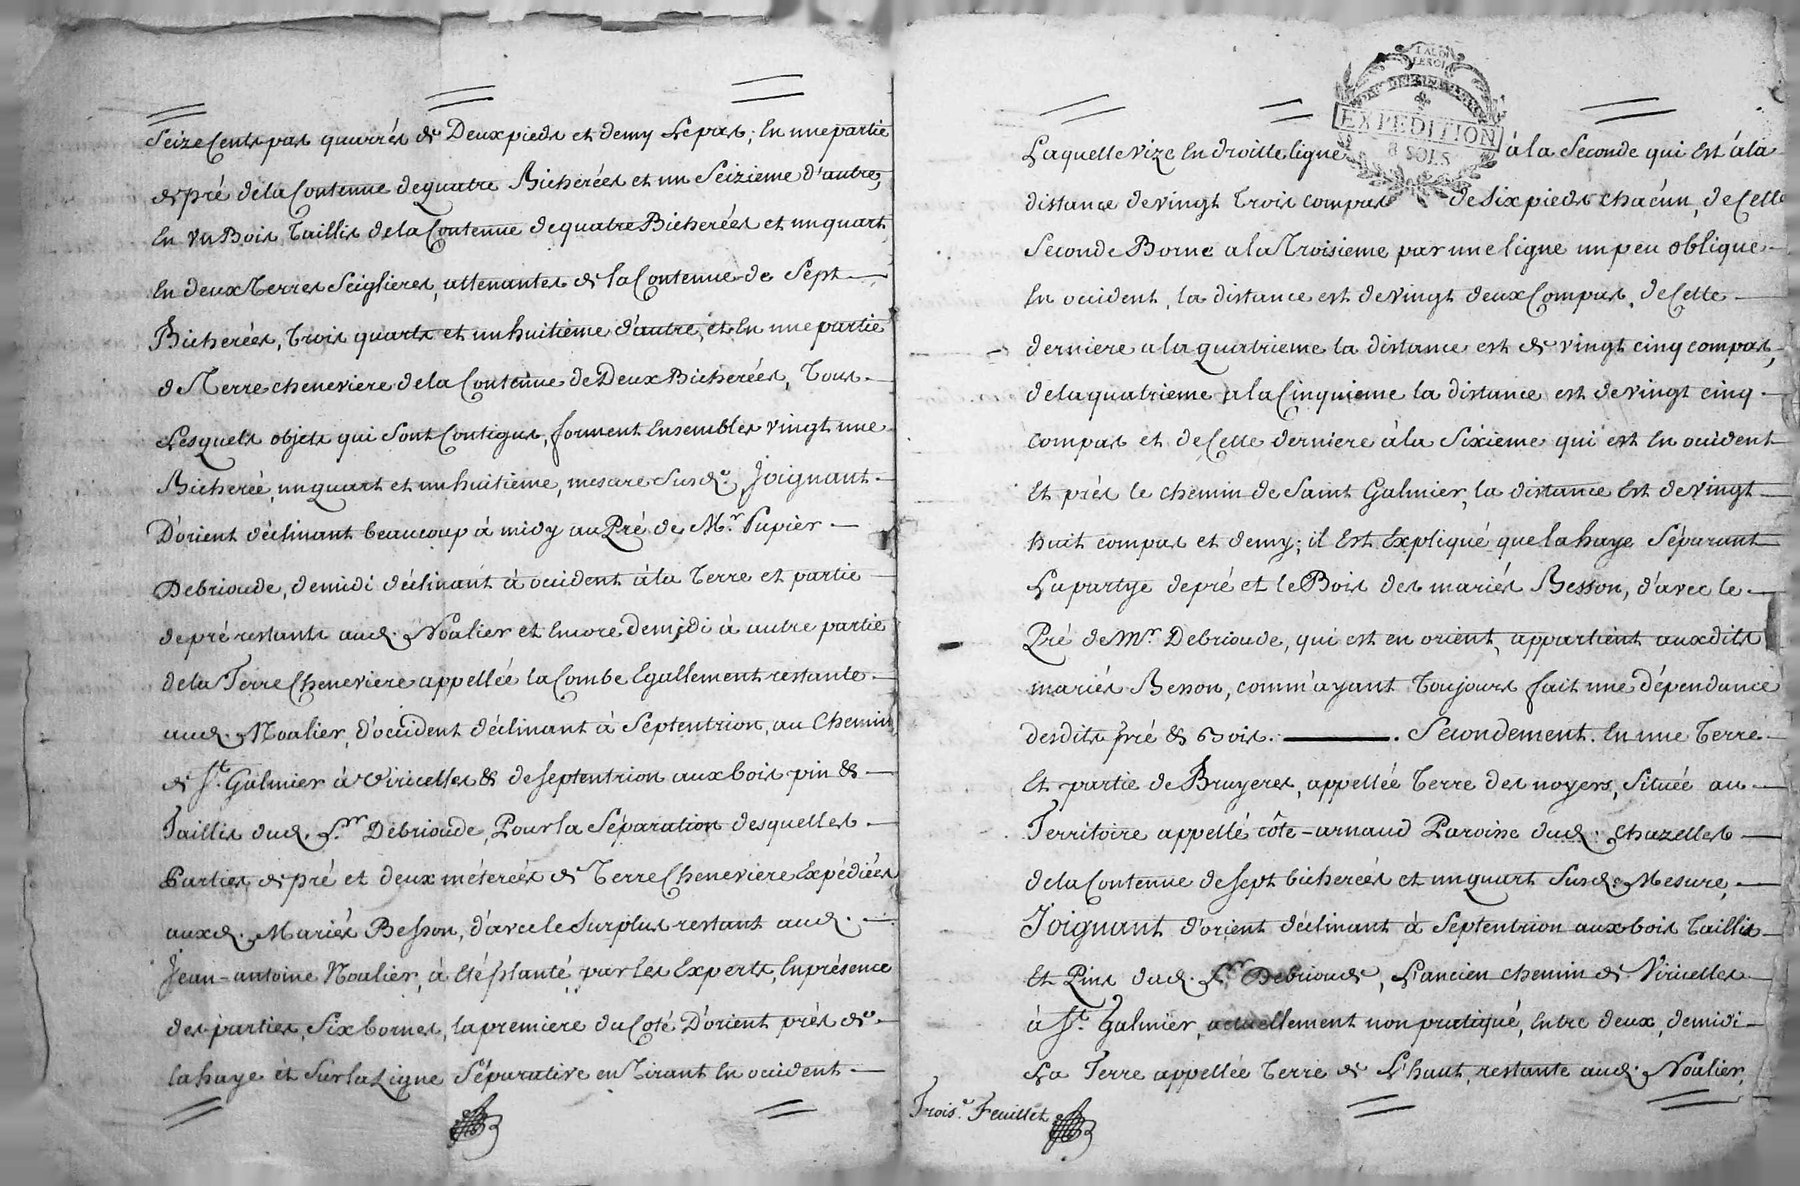 Seize Cents pas quarrés de Deux pieds et demy Le pas; En une partie
de pré de la Contenue de quatre Bicherées et un Seizieme d'autre,
En un Bois Taillis de la Contenue de quatre Bicherées et un quart
En deux Terres Seiglieres, attenantes de la Contenue de Sept —
Bicherées, Trois quarts et un huitième d'autre, et En une partie
de Terre cheneviere de la Contenue de Deux Bicherées, Tous —
Lesquels objets qui Sont Contigus, forment Ensembles vingt une
Bicherée, un quart et un huitième, mesure Susde. Joignant —
D'orient déclinant beaucoup à midy au Pré de Mr. Pupier —
Debrioude, de midi déclinant à occident à la Terre et partie
de pré restants aud. Noalier et Encore de midi à autre partie
de la Terre Cheneviere appellée la Combe Egallement restante —
aud. Noalier, d'occident déclinant à Septentrion, au Chemin
de St. Galmier à Viricelles & de Septentrion aux bois pin & —
Taillis dud. Sr. Debrioude, Pour la Séparation desquelles —
Parties de pré et deux méterées de Terre Cheneviere Expédiées
auxd. Mariés Besson, d'avec le Surplus restant aud. —
Jean-antoine Noalier, à Eté planté, par les Experts, En présence
des parties, Six bornes, la premiere du Coté D'orient près de —
la haye et Sur la Ligne Séparative en Tirant En occident —
Laquelle vize En droitte ligne à la Seconde qui Est à la
distance de vingt Trois compas de Six pieds chacun, de Cette
Seconde Borne a la Troisieme par une ligne un peu oblique —
En occident, la distance est de vingt deux Compas, de Cette —
derniere a la quatrieme la distance est de vingt cinq compas,
de la quatrieme a la Cinquieme la distance est de vingt cinq —
compas et de Cette derniere à la Sixieme qui est En occident
Et près le chemin de Saint Galmier, la distance Est de vingt
huit compas et demy; il Est Expliqué que la haye Séparant
La partye de pré et le Bois des mariés Besson, d'avec le —
Pré de Mr. Debrioude, qui est en orient, appartient auxdits
mariés Besson, comm'ayant Toujours fait une dépendance
desdits pré & Bois. ——— . Secondement. En une Terre —
Et partie de Bruyeres, appellée Terre des noyers, Située au —
Territoire appellé côte-arnaud Paroisse dud. Chazelles —
de la Contenue de Sept bicherées et un quart Susd. Mesure, —
Joignant d'orient déclinant à Septentrion aux bois Taillis —
Et Pins dud. Sr. Debrioude, L'ancien chemin de Viricelles —
à St. Galmier, actuellement non pratiqué, Entre deux, de midi —
La Terre appellée Terre de L'haut, restante aud. Noalier,
Trois.e Feuillet
EXPEDITION
8 SOLS